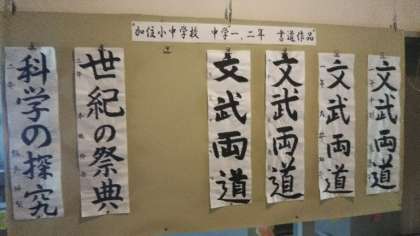 加住小中学校 中学一、二年 書道作品
文武両道
文武両道
文武両道
文武両道
世紀の祭典
科学の探究